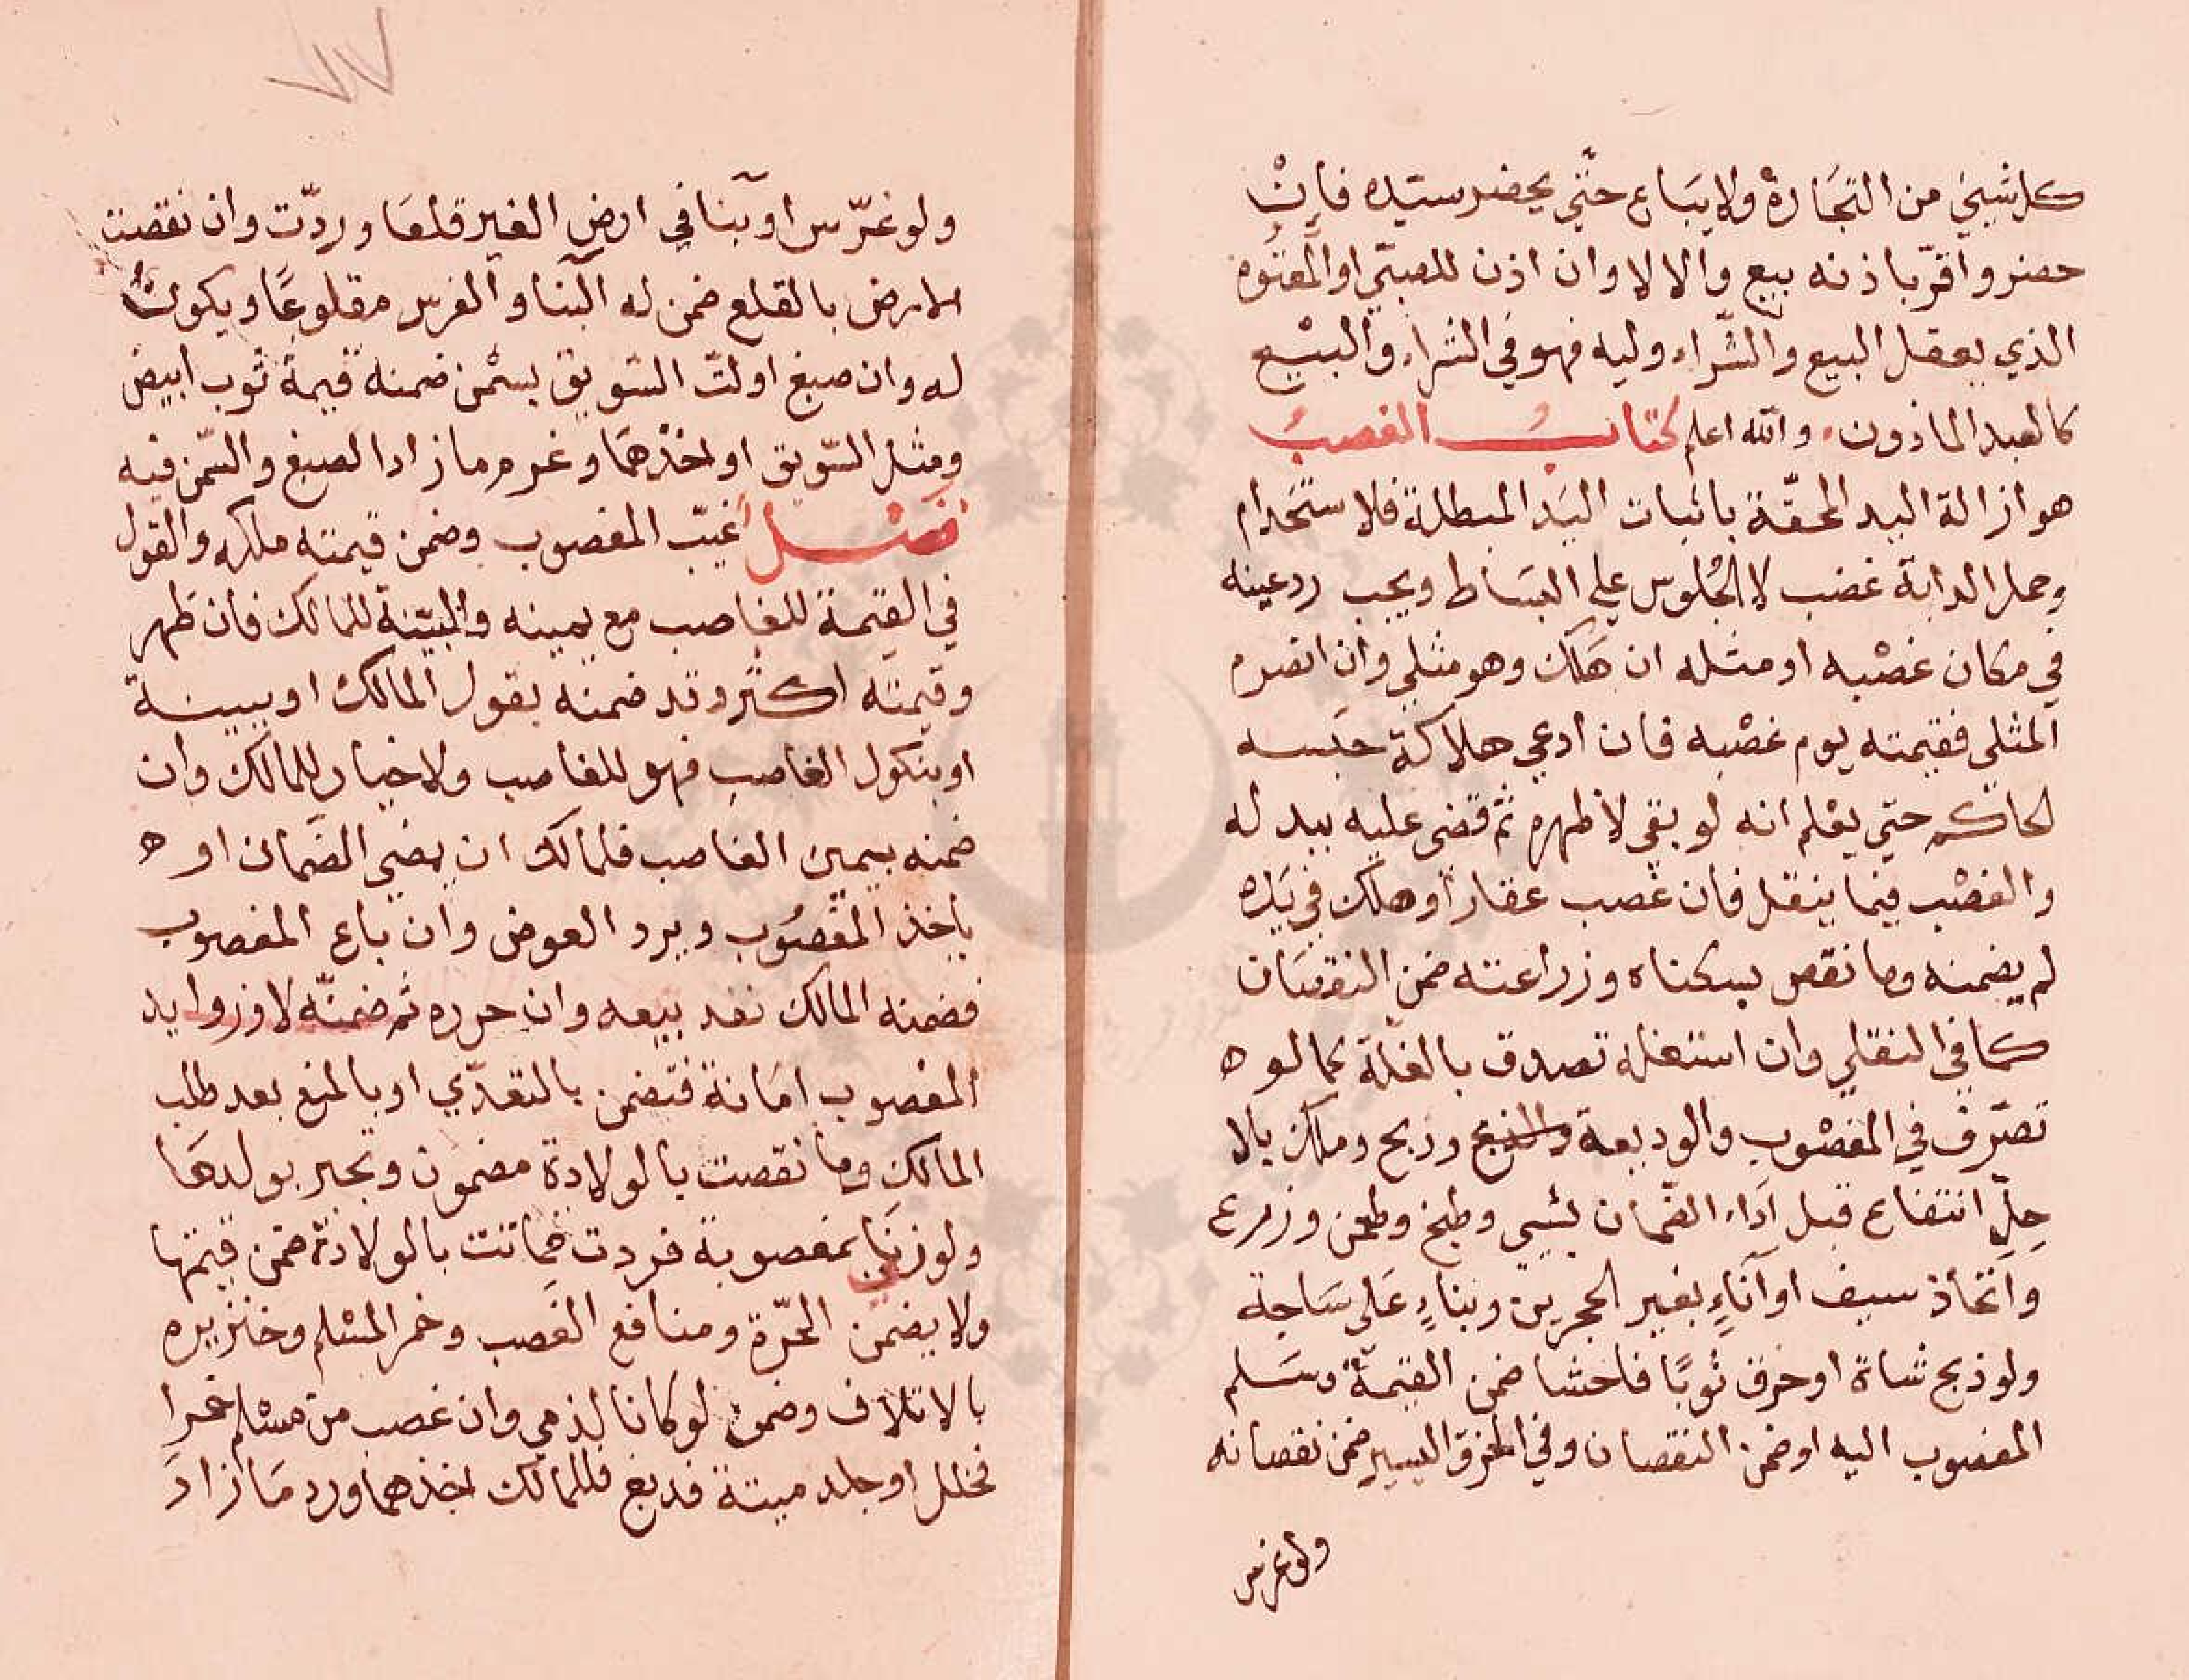 كل شيئ من التجارة ولا يباع حتّي يحضر سيّده فان
حضر واقرّ باذنه بيع والا لا وان اذن للصبيّ او المعتوه
الذي يعقل البيع والشّراء وليه فهو في الشراء والبيع
كالعبد الماذون والله اعلم كتاب الغصب
هو ازالة اليد المحقّة باثبات اليَد المبطلة فلاستخدام
وحمل الدابة غضب لا الجُلوس علي البسَاط ويجب رد عينه
في مكان غصْبه او مثله ان هَلَك وهو مثلي وان انصرم
المثلي فقيمته يوم غصْبه فان ادعي هلاكة حبَسه
الحاكم حتّي يعْلم انه لو بقي لاظهره ثم قضي عليه ببدله
والغصْب فيما ينقل فان غصب عقارا وهلك في يَده
لم يضمنه وما نقص بسكناه وزراعته ضمن النقصَان
كما في النقلي وان استغله تصدق بالغلّة كما لو ه
تصَرّف في المغصْوب والوديعة وربح وذبح وملك بلا
حِلّ انتفاع قبل اَدَاء الضّمان بشيي وطبخ وطحن وزرع
واتخاذ سيف او آنَاءٍ بغير الحجرين وبناءٍ عَلي سَاجة
ولو ذبح شاة او خرق ثوبًا فاحشا ضمن القيمَة وسَلم
المغصوب اليه او ضمن النقصان وفي الخرق اليسير ضمن نقصانه
ولو غرس
ولو غرّس او بنا في ارض الغير قلعَا وردّت وان نقصت
الارض بالقلع ضمن له البنا والغرس مقلوعًا ويكون
له وان صبغ او لتّ السّويق بسمْن ضمنه قيمة ثوب ابيض
ومثل السّويق او اخذهمَا وغرم ما زاد الصبغ والسّمن فيه
فصل غيّب المغصوب وضمن قيمته ملكه والقول
في القيمة للغاصب مع يمينه والبيّنة للمالك فان ظهر
وقيمته اكثر وقد ضمنه بقول المالك او ببينة
او بنكول الغاصب فهو للغاصب ولا خيار للمالك وان
ضمنه بيمين الغاصب فلمالك ان يمضي الضَمان او ه
ياخذ المغصُوب ويرد العوض وان باع المغصوب
فضمنه المالك نفد بيعه وان حرره ثم ضمنّه لا وزوايد
المغصوب امَانة فتضمن بالتعدّي او بالمنع بعد طلب
المالك وما نقصت بالولادة مضمون وتجبر بولدهَا
ولو زنَي بمغصوبة فردت فماتت بالولادة ضمن قيمتها
ولا يضمن الحرّة ومنافع الغَصب وخمر المسْلم وخنزيره
بالاتلاف وضمن لو كانا لذمي وان غصب من مسْلم خمرا
فخلل او جلد ميتة فدبغ فللمالك اخذهما ورد مَا زادَ